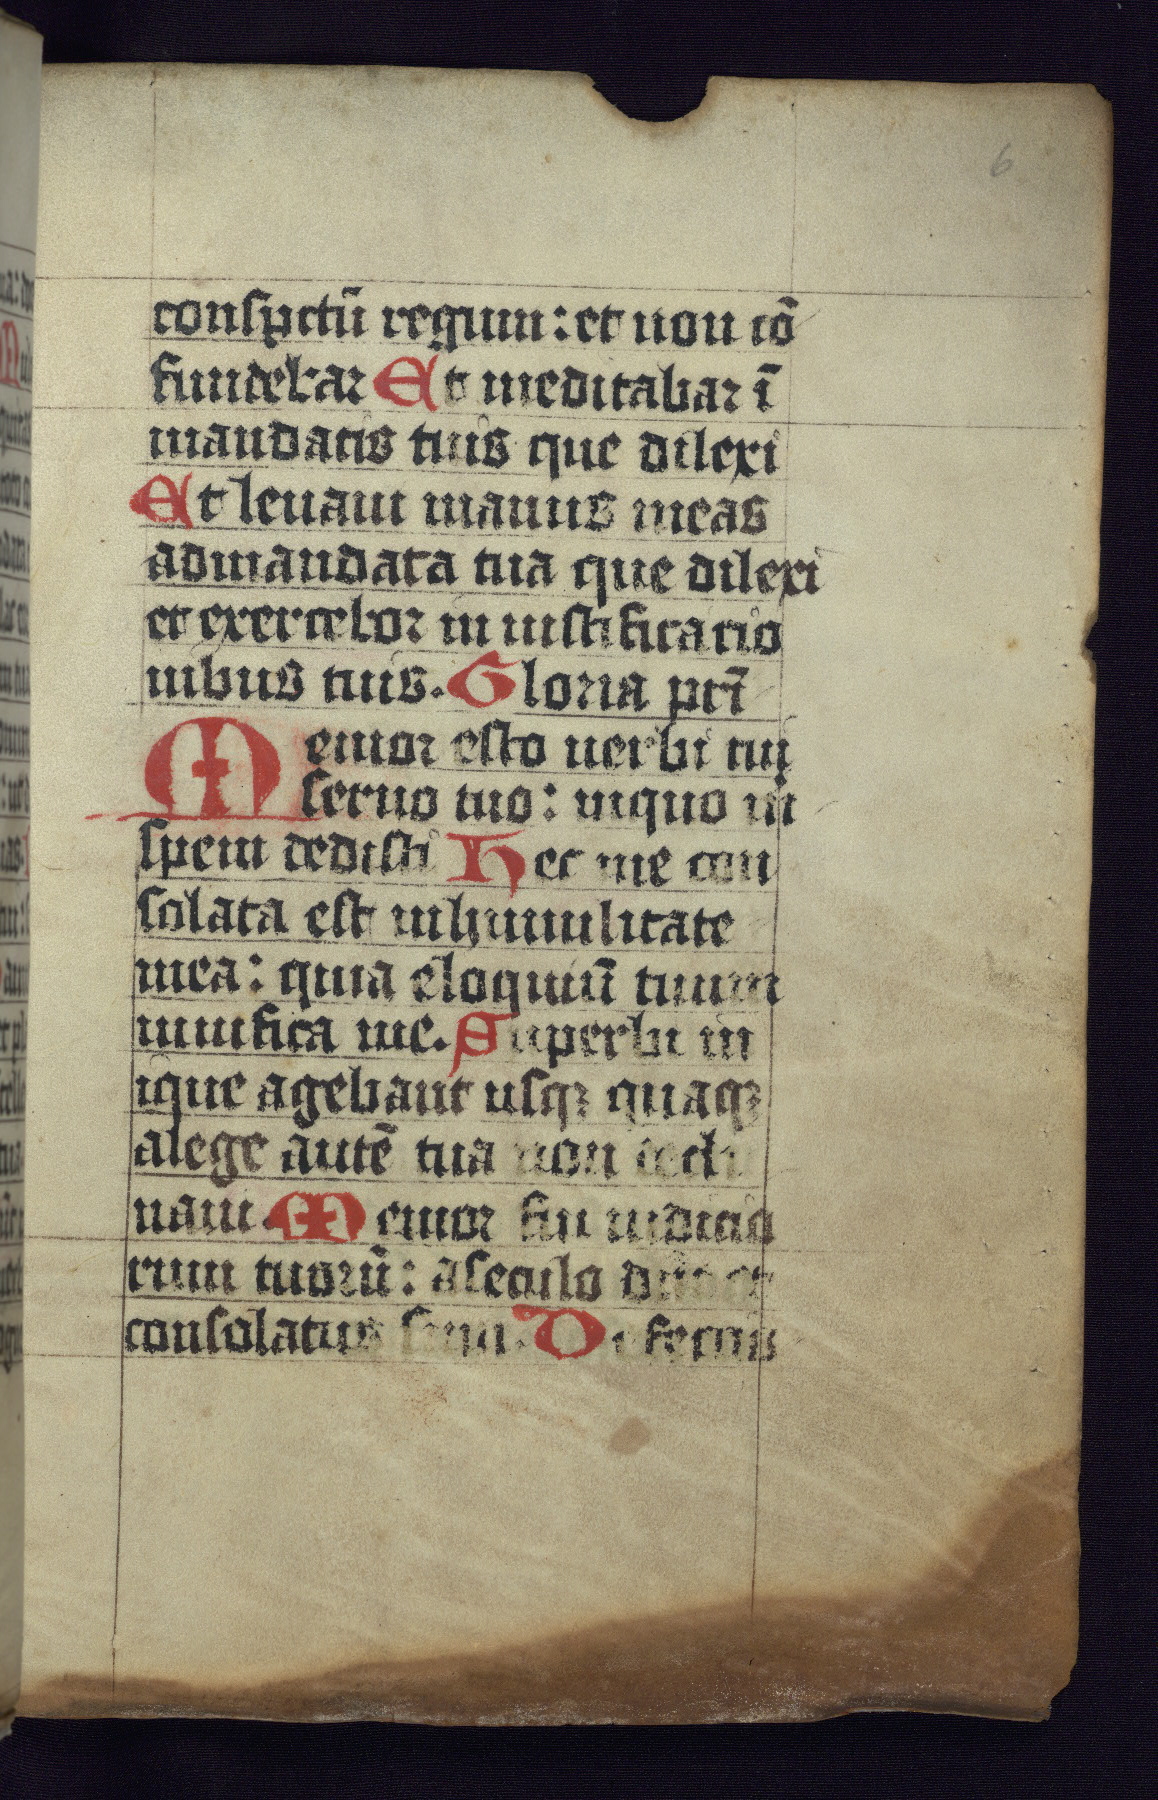 6
conspctū regum : et non cō
fundebar Et meditabar ī
mandatis tuis que dilexi
Et leuaui manus meas
admandata tua que dilexi
et exercebor in iustificatio
nibus tuis. Gloria pcī
Memor esto uerbi tui
seruo tuo : inquo in
spem dedisti Hec me con
solata est inhumilitate
mea : quia eloquiū tuum
uiuifica me. Superbi in
ique agebant usqꝫ quaqꝫ
alege autē tua non decli
naui. Memor fui iudicio
rum tuorū : aseculo dn̄e et
consolatus sum. Defectis